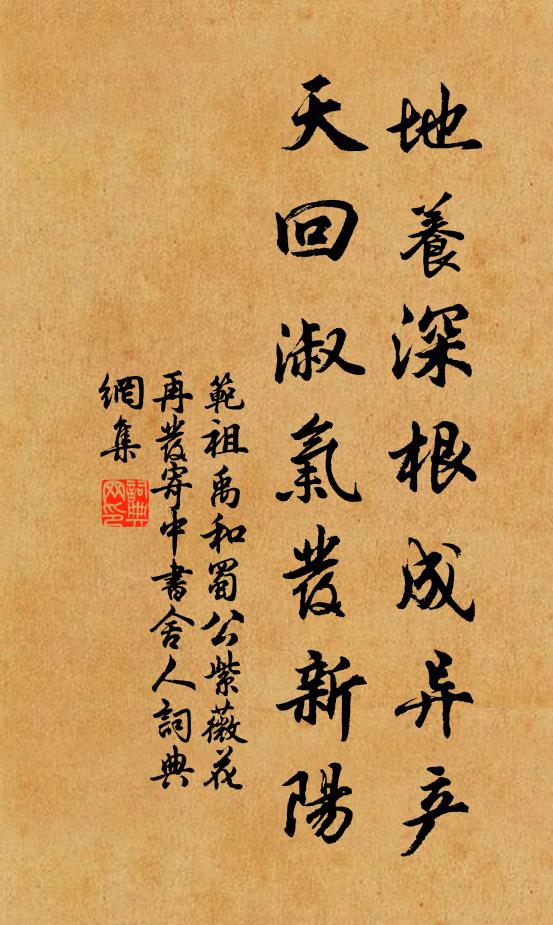 地養深根成异产
天回淑氣發新陽
範祖禹和蜀公紫薇花
再發寄中書舍人詞典
網集
詞典
网印